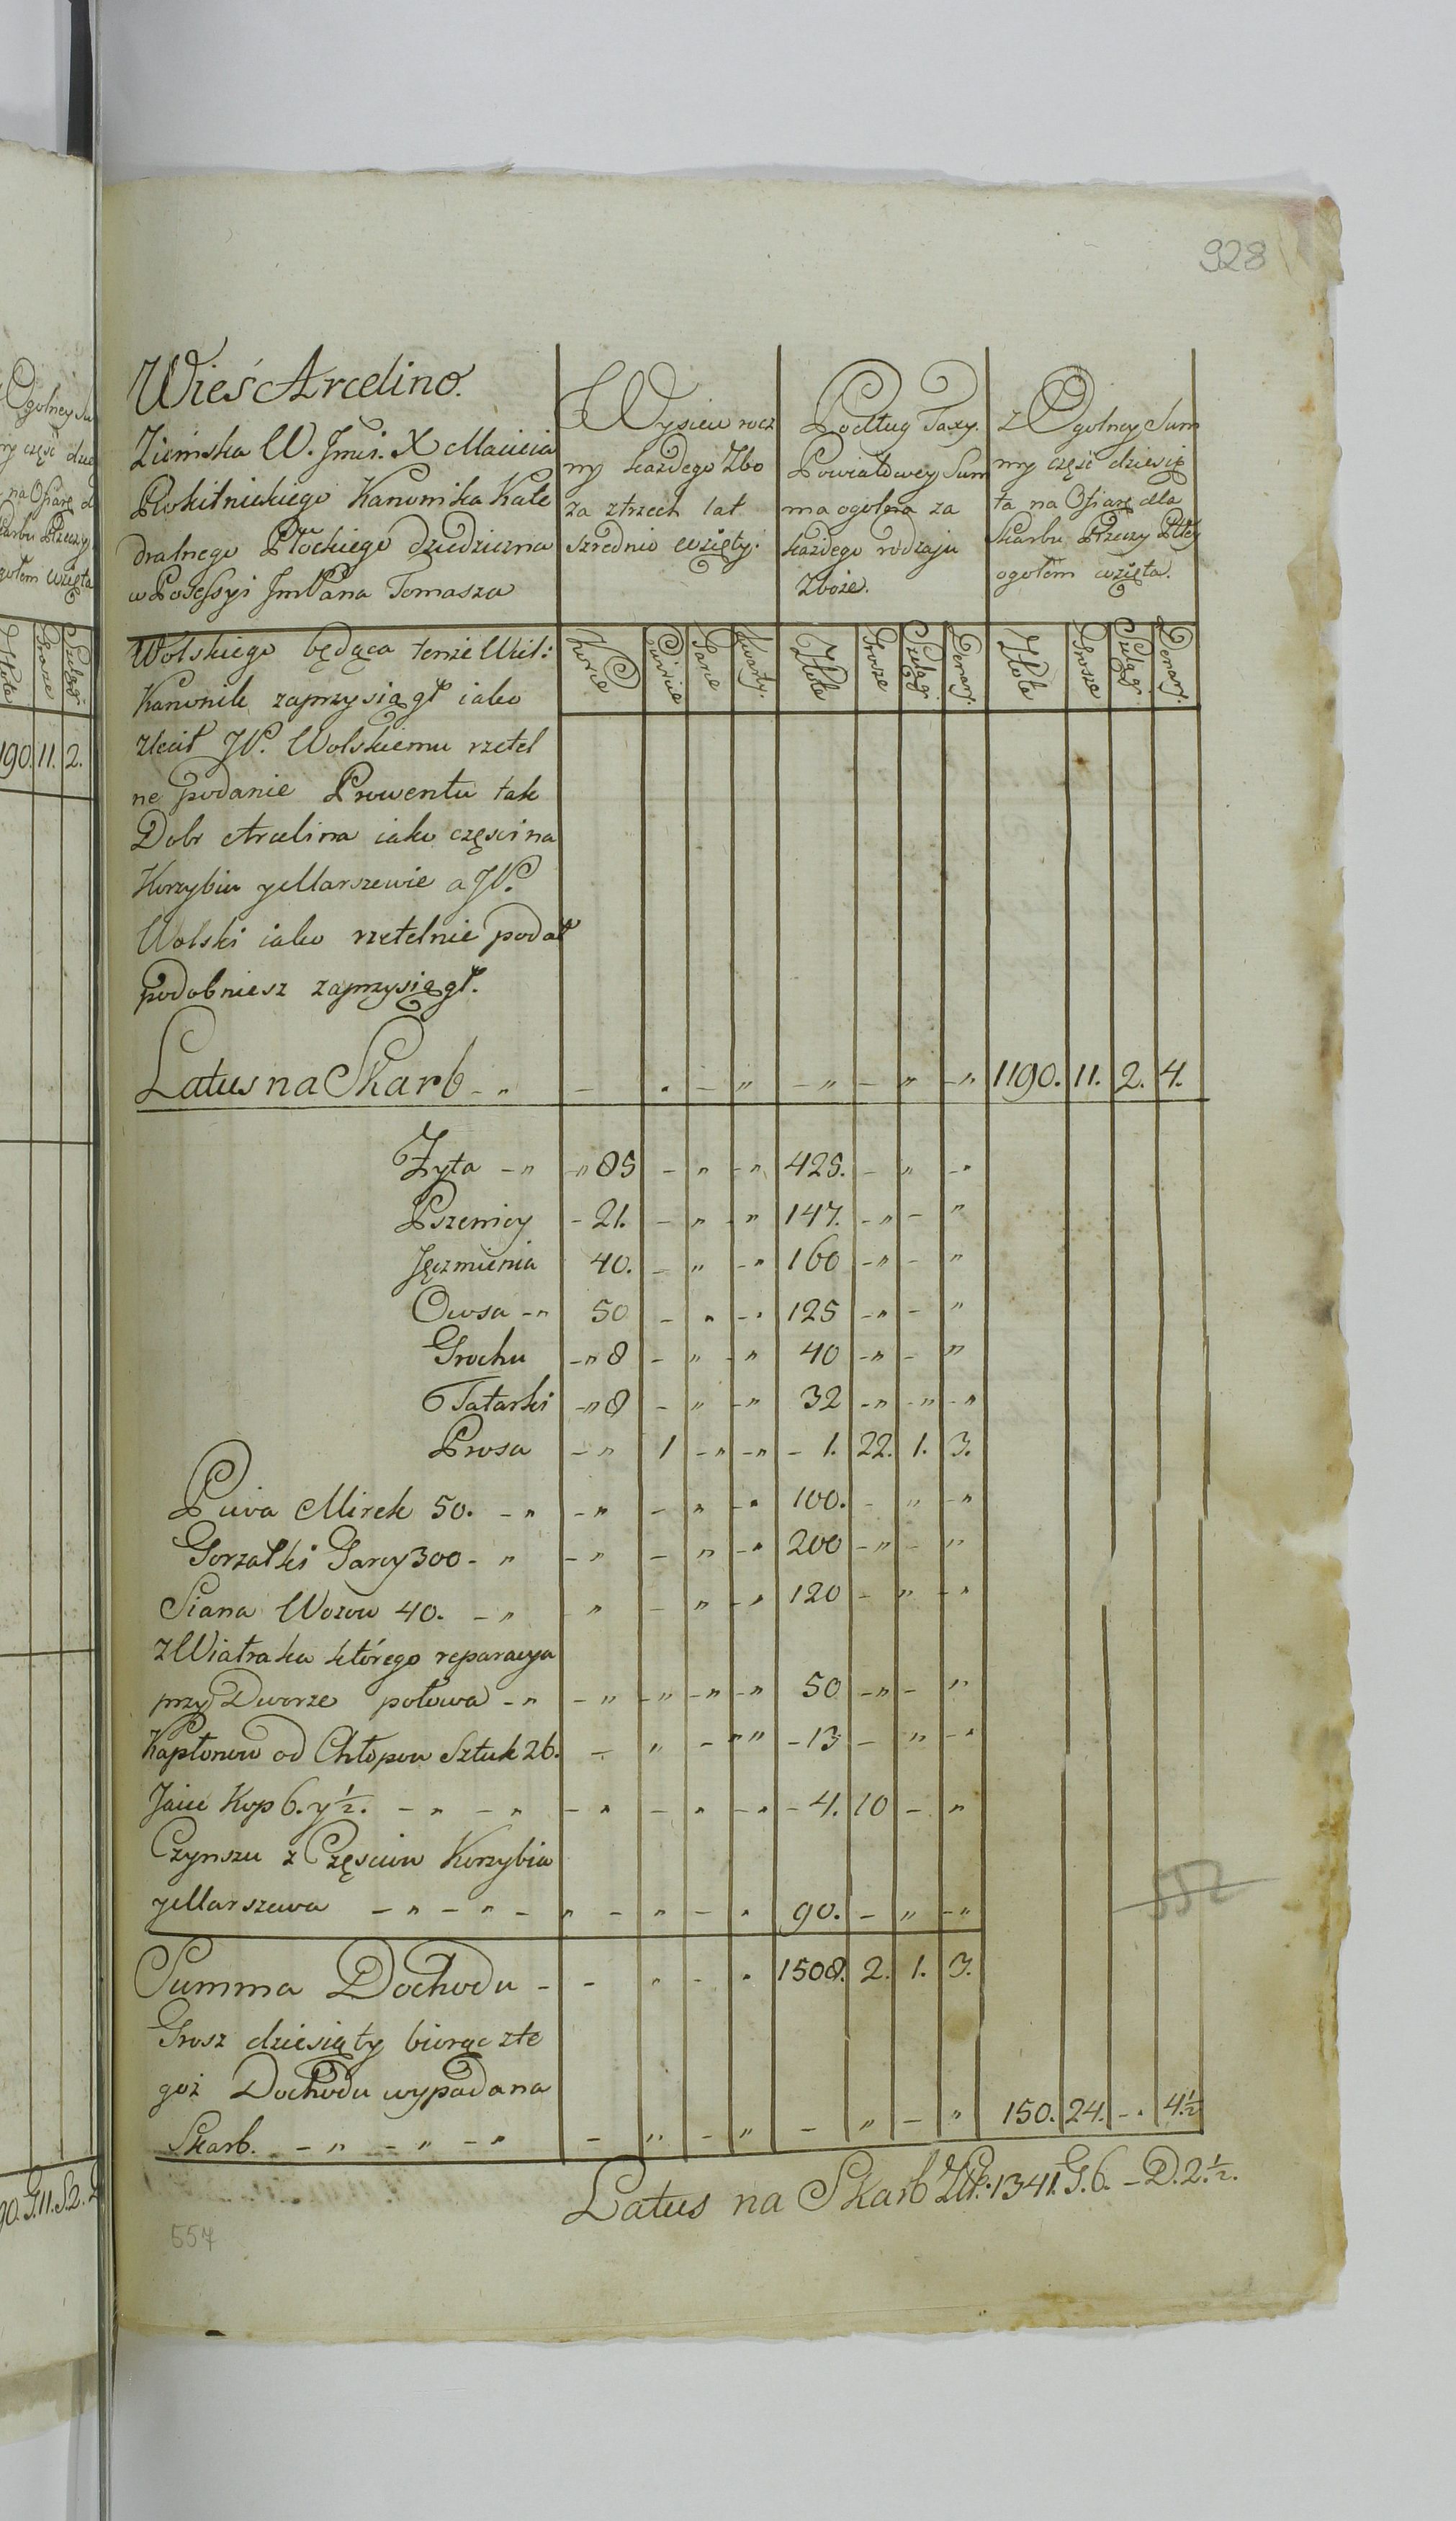 928
Wieś Arcelino.
Ziemska W. Jmci. X Macieia
Rokitnickiego Kanonika Kate
dralnego Płockiego dziedziczna
w Possessyi JmPana Tomasza
Wolskiego będąca tenże Wiel:
Kanonik zaprzysiągł iako
zlecił JP. Wolskiemu rzetel
ne podanie Prowentu tak
Dobr Arcelina iako części na
Korzybiu y Marszewie a JP.
Wolski iako rzetelnie podał
podobniesz zaprzysiągł.
Wysiew rocz
ny każdego Zbo
za z trzech lat
szrednio wzięty.
Podług Taxy
Powiatowey Sum
ma ogolna za
każdego rodzaju
Zboże.
z Ogolney Sum
my część dziesią
ta na Ofiarę dla
Skarbu Rzeczy Pltey
ogołem wzięta.
Korce | Cwierce | Garce | Kwarty. | Złote | Grosze | Szelągi | Denary. | Złote | Grosze | Szelągi | Denary.
Latus na Skarb - " - . - " - " - " - " 1190. 11. 2. 4.
Żyta - " - " 85 - " - " 425. - " - "
Pszenicy - 21. - " - " 147. - " - "
Jęczmienia 40. - " - " 160 - " - "
Owsa - " 50 - " - " 125 - " - "
Grochu - " 8 - " - " 40 - " - "
Tatarki - " 8 - " - " 32 - " - " - "
Prosa - " 1 - " - " - 1. 22. 1. 3.
Piwa Mirek 50. - " - " - " - " 100. - " - "
Gorzałki Garcy 300 - " - " - " - " 200 - " - "
Siana Wozow 40. - " - " - " - " 120 - " - "
z Wiatraka którego reparacya
przy Dworze połowa - " - " - " - " - " 50 - " - "
Kapłonow od Chłopow Sztuk 26. - " - " " - 13 - " - "
Jaiec Kop 6. y ½. - " - " - " - " - " - 4. 10 - "
Czynszu z Częściow Korzybia
y Marszewa - " - " - " - " - " 90. - " - "
Summa Dochodu - - " - " 1508. 2. 1. 3.
Grosz dziesiąty biorąc z te
goż Dochodu wypada na
Skarb. - " - " - " - " - " - " - " 150. 24. - . 4½
Latus na Skarb Złt. 1341. G. 6. - D. 2.½.
552
557
Ogolney Su
my część dzie
na Ofiarę d
Skarbu Rzeczy
ogołem wzięta
Złote | Grosze | Szelągi
190. 11. 2.
90. G. 11. S. 2.